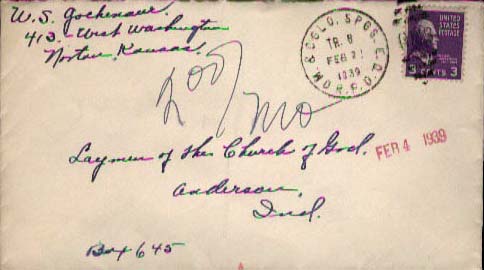 W. S. Gochenaur.
413 - West Washington
Norton, Kansas.
& COLO. SPGS. E.D.
TR. 8
FEB 2
1939
R.P.O.
UNITED
STATES
POSTAGE
3 CENTS 3
Mo
Laymen of the Church of God.
FEB 4 1939
Anderson,
Ind.
Box 645